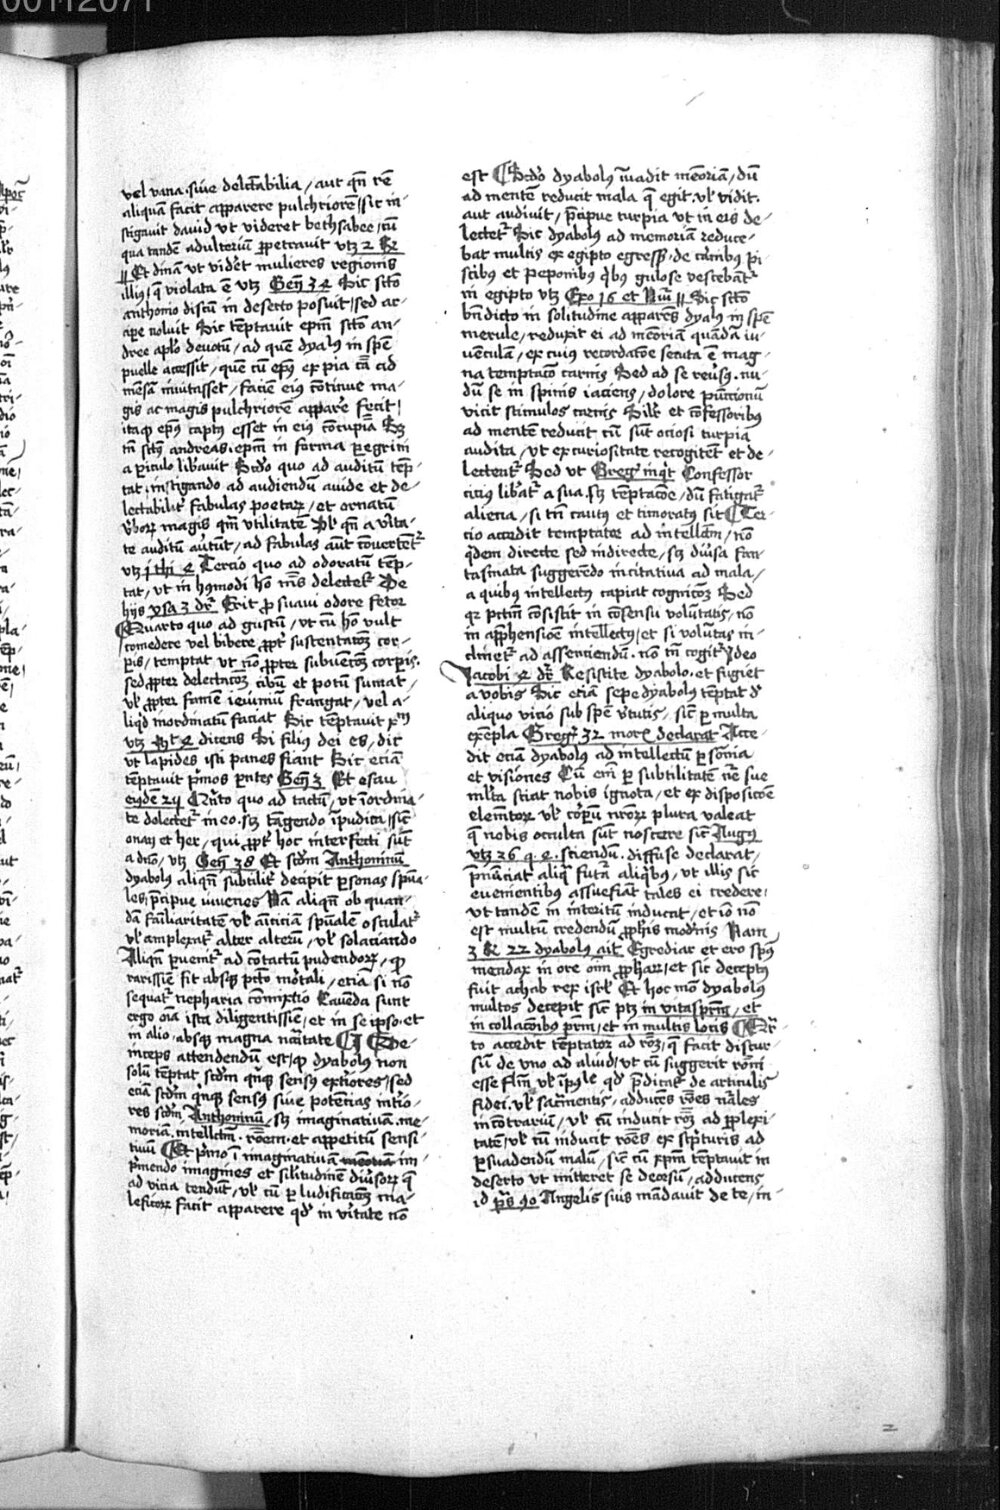 vel vana siue delectabilia / aut qn̄ rē
aliquam facit apparere pulchriorē // sic in-
stigauit dauid vt videret bethsabee / cū
qua tandē adulteriū ꝑpetrauit vtȝ 2 R̄
// Et dinā vt vidēt mulieres regionis
illiꝰ / q̄ violata ē vtȝ Gen̄ 34 Sic scт̄o
anthonio discū in deserto posuit / sed ac-
cipe noluit Sic tēptauit epm̄ scт̄o an-
dree aplo deuotū / ad quē dyalꝰ in spē
puelle accessit / quē cū epꝰ ex pia cā ad
mēsā inuitasset / faciē eiꝰ cōtinue ma-
gis ac magis pulchriorē apparē fecit /
itaqꝫ epꝰ captꝰ esset in eiꝰ cōcupīa Sȝ
tn̄ sctꝰ andreas epm̄ in forma pegrini
a piculo libauit Scdo quo ad auditū tēp-
tat / instigando ad audiendū auide et de-
lectabilit̄ fabulas poetarꝝ / et ornatū
v̄borꝝ magis qm̄ vtilitatē vl̓ qn̄ a v̄ita-
te auditū au̓tūt / ad fabulas aūt cōuertēt᷑
vtȝ j thi 4 Tercio quo ad odoratū tēp-
tat / vt in hꝰmodi hō nīs delectet᷑ De
hijs ysa 3 dr̄ Erit ꝓ suaui odore fetor
Quarto quo ad gustū / vt cū hō vult
comedere vel bibere ꝓpt̓ sustentatōȝ cor-
pis / temptat vt nō ꝓpter subuētōȝ corpis.
sed ꝓpter delectacōȝ cibū et potū sumat /
vl̓ ꝓpter famē ieiuniū frangat / vel a-
liqd inordinatū faciat Sic tēptauit xp̄m
vtȝ Mt̄ 4 dicens Si filiꝰ dei es / dic
vt lapides isti panes fiant Sic eciā
tēptauit pmos pntes Gen̄ 3 Et esau
eyдē 24 Qr̄to quo ad tactū / vt īordina-
te delectet᷑ in eo sȝ tāgendo īpudica / sic̄
onan et her / qui ꝓpt̓ hoc interfecti sūt
a dn̄o / vtȝ Gen̄ 38 Et scdm̄ Anthoninū
dyabolꝰ aliqn̄ subtilit̓ decipit psonas spūa-
les / p̄cipue iuuenes Nā aliqn̄ ob quan-
dā familiaritatē vl̓ amiciciā spūalē osculat᷑
vl̓ amplexat᷑ alter alterū / vl̓ solaciando
Aliqn̄ puenit᷑ ad cōtactū pudendorꝝ / qꝫ
rarissīe fit absqꝫ pctō mōtali / eciā si nō
sequat᷑ nepharia cōmixtio Cauēda sunt
ergo oīa ista diligentissīe / et in se ip̄so et
in alio absqꝫ magna nc̄itate ¶ De-
inceps attendendū est / qꝫ dyabolꝰ non
solū tēptat scdm̄ qn̄qꝫ sensꝰ exteriores / sed
eciā scdm̄ qnqꝫ sensꝰ siue potencias int̓io-
res scdm̄ Anthoninū / sȝ imaginatiuā me-
moriā intellctm̄ rōem et appetitū sensi-
tiuū ¶ Et pmo ī imaginatiuā im-
pmendo imagines et silitudinē diu̓sorꝝ q̄
ad vicia tendūt / vl̓ cū p ludificacōȝ ma-
leficorꝝ facit apparere qd̓ in v̓itate nō
est ¶ Scdo dyabolꝰ īuadit memoriā / dū
ad mentē reducit mala q̄ egit vl̓ vidit
aut audiuit / p̄cipue turpia vt in eis de-
lectet᷑ Sic dyabolꝰ ad memoriā reduce-
bat multis ex egipto egress̄ de carnibꝰ pi-
scibꝰ et peponibꝰ qbꝰ gulose vescebāt᷑
in egipto vtȝ Exo 16 et Nūi // Sic scт̄o
bn̄dicto in solitudine apparēs dyalꝰ in spē
merule / reduxit ei ad memoriā quādā iu-
uenculā / ex cuiꝰ recordatōe secuta ē mag-
na temptaco carnis Sed ad se reu̓sꝰ nu-
dū se in spinis iaciens / dolore pūctionū
vicit stimulos carnis Silit᷑ et cōfessoribꝰ
ad mentē reducit cū sūt ociosi turpia
audita / vt ex curiositate recogitēt et de-
lectent᷑ Sed vt Greg᷑ inqt Confessor
citiꝰ libat᷑ a sua sȝ tēptacōe / dū fatigat᷑
aliena / si tn̄ cautꝰ et timoratꝰ sit ¶ Ter-
cio accedit temptator ad intellctm̄ / nō
qdem directe sed indirecte / sȝ diu̓sa fan-
tasmata suggerēdo incitatiua ad mala /
a quibꝰ intellectꝰ capiat cognicōȝ Sed
qr pctm̄ cōsistit in cōsensu volūtatis / nō
in apphensiōe intellectꝰ / et si volūtas in-
clinet᷑ ad assenciendū nō tn̄ cogit᷑ Ideo
Jacobi 4 dr̄ Resistite dyabolo et fugiet
a vobis Sic eciā sepe dyabolꝰ tēptat de
aliquo vicio sub spē v̓tutis / sic̄ p multa
exēpla Greg᷑ 32 moral̓ declarat Acce-
dit eciā dyabolꝰ ad intellectū p sōmnia
et visiones Cū em̄ p subtilitatē nr̄e sue
ml̓ta sciat nobis ignota / et ex disposicōe
elem̄torꝝ vl̓ corpum nr̄orꝝ plura valeat
q̄ nobis occulta sūt noscere sic̄ Augꝰ
vtȝ 26 q. 4. sciendū diffuse declarat /
pnūciat aliqn̄ futā aliqbꝰ / vt illis sic
euenientibꝰ assuefiāt tales ei credere /
vt tandē in interitū inducat / et iō nō
est multū credendū ꝓph̄is modn̄is Nam
3 R̄ 22 dyabolꝰ ait Egrediar et ero spūs
mendax in ore oīm ꝓph̄arꝝ / et sic deceptꝰ
fuit achab rex isrl̓ Et hoc mō dyabolꝰ
multos decepit sic̄ ptȝ in vitaspr̄m̄ / et
in collacōibꝰ pr̄m / et in multis locis ¶ Qr̄-
to accedit tēptator ad rōȝ / q̄ facit discur-
sū de vno ad aliud / vt cū suggerit rōni
esse flm̄ vl̓ īpossible qd̓ p̄dicat᷑ de articulis
fidei vl̓ sacr̄mentis / adducēs rōes nāles
in cōtrariū / vl̓ cū inducit rōȝ ad pplexi-
tatē / vl̓ cū inducit rōes ex sc̓pturis ad
psuadendū malū / sic̄ cū xp̄m tēptauit in
deserto vt mitteret se deorsū / adducens
id ps̄ 90 Angelis suis mādauit de te / in-